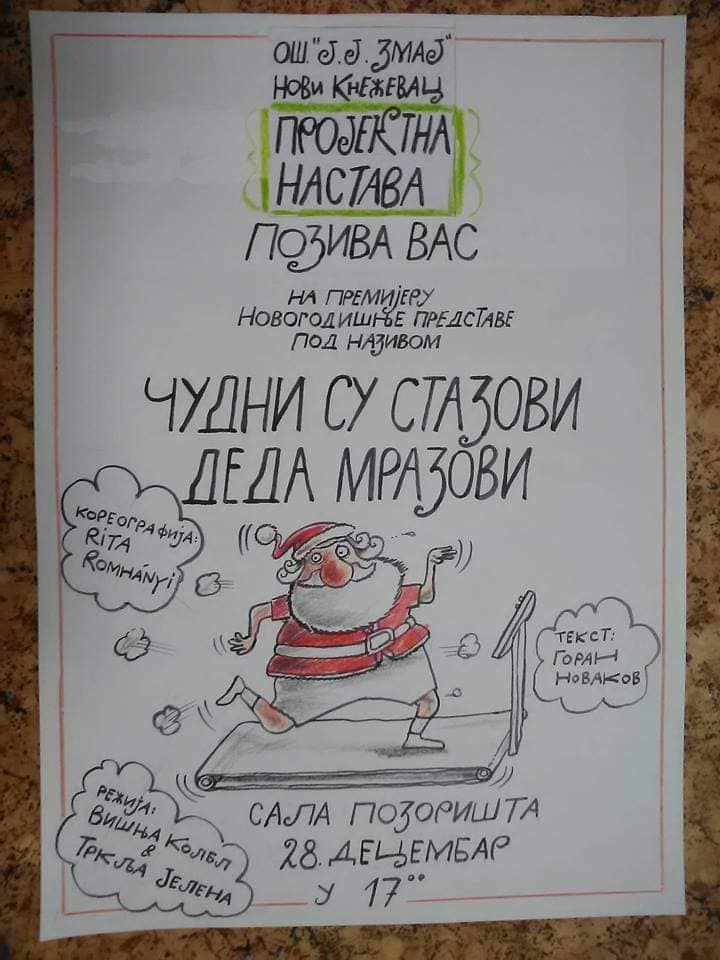 ОШ "Ј.Ј. ЗМАЈ"
НОВИ КНЕЖЕВАЦ
ПРОЈЕКТНА
НАСТАВА
ПОЗИВА ВАС
НА ПРЕМИЈЕРУ
НОВОГОДИШЊЕ ПРЕДСТАВЕ
ПОД НАЗИВОМ
ЧУДНИ СУ СТАЗОВИ
ДЕДА МРАЗОВИ
КОРЕОГРАФИЈА:
RITA
ROMHÁNYI
ТЕКСТ:
ГОРАН
НОВАКОВ
РЕЖИЈА:
ВИШЊА КОЛБЛ
&
ТРКЉА ЈЕЛЕНА
САЛА ПОЗОРИШТА
28. ДЕЦЕМБАР
У 17°°